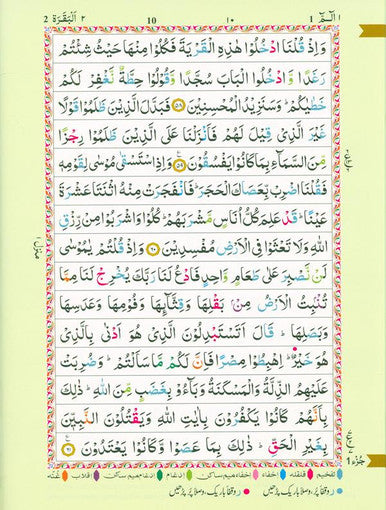 الٓمّٓ ١ 1 ١٠ 10 ٢ اَلْبَقَرَة 2
وَاِذْ قُلْنَا ادْخُلُوْا هٰذِهِ الْقَرْيَةَ فَكُلُوْا مِنْهَا حَيْثُ شِئْتُمْ
رَغَدًا وَّادْخُلُوا الْبَابَ سُجَّدًا وَّقُوْلُوْا حِطَّةٌ نَّغْفِرْ لَكُمْ
خَطٰيٰكُمْ ؕ وَسَنَزِيْدُ الْمُحْسِنِيْنَ ۝۵۸ فَبَدَّلَ الَّذِيْنَ ظَلَمُوْا قَوْلًا
غَيْرَ الَّذِيْ قِيْلَ لَهُمْ فَاَنْزَلْنَا عَلَى الَّذِيْنَ ظَلَمُوْا رِجْزًا
مِّنَ السَّمَآءِ بِمَا كَانُوْا يَفْسُقُوْنَ ۝۵۹ وَاِذِ اسْتَسْقٰى مُوْسٰى لِقَوْمِهٖ
فَقُلْنَا اضْرِبْ بِّعَصَاكَ الْحَجَرَ ؕ فَانْفَجَرَتْ مِنْهُ اثْنَتَا عَشْرَةَ
عَيْنًا ؕ قَدْ عَلِمَ كُلُّ اُنَاسٍ مَّشْرَبَهُمْ ؕ كُلُوْا وَاشْرَبُوْا مِنْ رِّزْقِ
اللّٰهِ وَلَا تَعْثَوْا فِي الْاَرْضِ مُفْسِدِيْنَ ۝۶۰ وَاِذْ قُلْتُمْ يٰمُوْسٰى
لَنْ نَّصْبِرَ عَلٰى طَعَامٍ وَّاحِدٍ فَادْعُ لَنَا رَبَّكَ يُخْرِجْ لَنَا مِمَّا
تُنْۢبِتُ الْاَرْضُ مِنْۢ بَقْلِهَا وَقِثَّآئِهَا وَفُوْمِهَا وَعَدَسِهَا
وَبَصَلِهَا ؕ قَالَ اَتَسْتَبْدِلُوْنَ الَّذِيْ هُوَ اَدْنٰى بِالَّذِيْ
هُوَ خَيْرٌ ؕ اِهْبِطُوْا مِصْرًا فَاِنَّ لَكُمْ مَّا سَاَلْتُمْ ؕ وَضُرِبَتْ
عَلَيْهِمُ الذِّلَّةُ وَالْمَسْكَنَةُ وَبَآءُوْ بِغَضَبٍ مِّنَ اللّٰهِ ؕ ذٰلِكَ
بِاَنَّهُمْ كَانُوْا يَكْفُرُوْنَ بِاٰيٰتِ اللّٰهِ وَيَقْتُلُوْنَ النَّبِيّٖنَ
بِغَيْرِ الْحَقِّ ؕ ذٰلِكَ بِمَا عَصَوْا وَّكَانُوْا يَعْتَدُوْنَ ۝۶۱
جُزء 1
تفخیم قلقلہ اخفاء اخفاءمیم ساکن ادغام ادغام میم ساکن اقلاب غُنّہ
ر وقفاً پُر، وصلاً باریک پڑھیں ر وقفاً باریک، وصلاً پُر پڑھیں